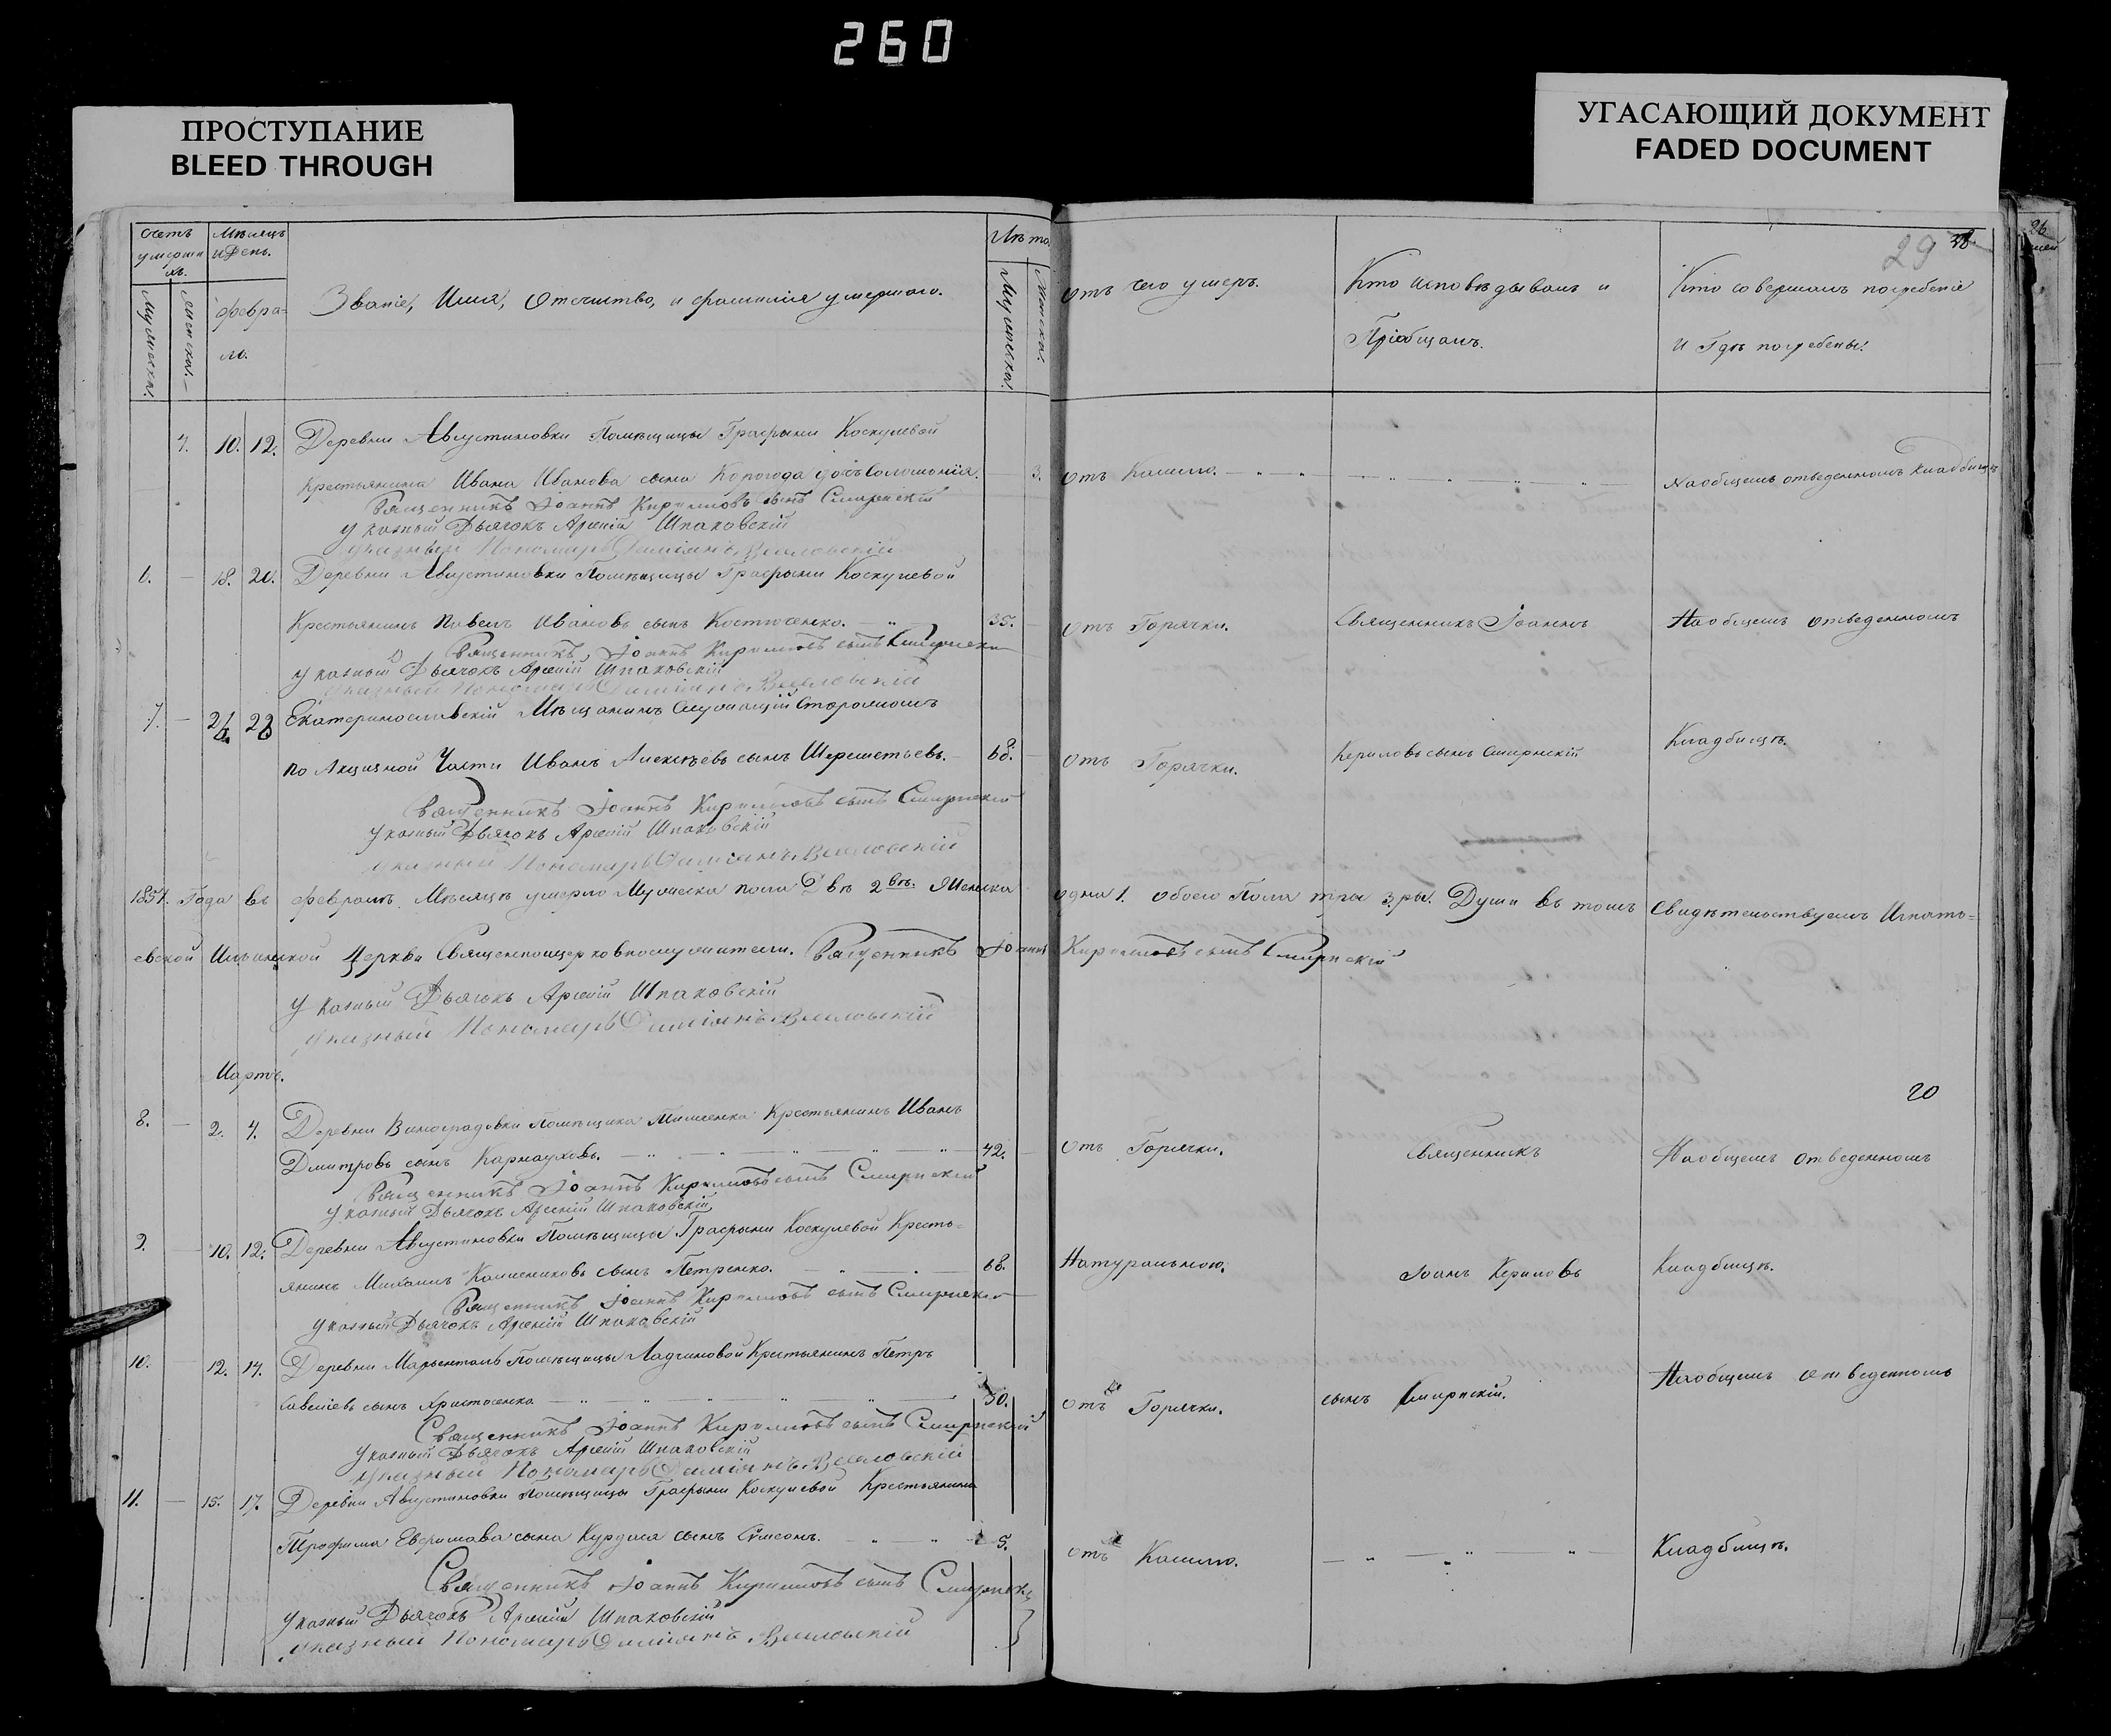 260
ПРОСТУПАНИЕ
BLEED THROUGH
УГАСАЮЩИЙ ДОКУМЕНТ
FADED DOCUMENT
29
26
Счетъ умершихъ.
Мужеска.
Женска.
Мѣсяцъ и День.
Февраль.
Званіе, Имя, Отечество, и фамилія умершаго.
Лѣта.
Мужеска.
Женска.
Отъ чего умеръ.
Кто исповѣдывалъ и
Пріобщалъ.
Кто совершалъ погребеніе
и Гдѣ погребены.
4. 10. 12. Деревни Августиновки Помѣщицы Графыни Коскулевой
крестьянина Ивана Иванова сына дочь Соломонія. 3. отъ Кашлю. Наобщемъ отведенномъ кладбищѣ
Священникъ Іоаннъ Кирилловъ сынъ Смирнскій
Указный Дьячокъ Арсеній Шпаковскій
Указный Пономарь Даміянъ Веселовскій
6. 18. 20. Деревни Августиновки Помѣщицы Графыни Коскулевой
Крестьянинъ Павелъ Ивановъ сынъ Костюченко. 35. Отъ Горячки. Священникъ Іоаннъ Наобщемъ отведенномъ
Священникъ Іоаннъ Кирилловъ сынъ Смирнскій
Указный Дьячокъ Арсеній Шпаковскій
Указный Пономарь Даміянъ Веселовскій
7. 26. 28 Екатеринославскій Мѣщанинъ Служащій Сторожомъ
по Акцизной Части Иванъ Алексѣевъ сынъ Шереметьевъ. 68. Отъ Горячки. Кериловъ сынъ Смирнскій Кладбищѣ.
Священникъ Іоаннъ Кирилловъ сынъ Смирнскій
Указный Дьячокъ Арсеній Шпаковскій
Указный Пономарь Даміянъ Веселовскій
1857. Года въ февралѣ Мѣсяцѣ умерло Мужеска пола Двѣ 2вѣ. Женска одна 1. Обоего Пола три 3.ры. Души въ томъ Свидѣтельствуемъ Игнать=
евской Ильинской Церкви Священноцерковнослужители. Священникъ Іоаннъ Кирилловъ сынъ Смирнскій
Указный Дьячокъ Арсеній Шпаковскій
Указный Пономарь Даміянъ Веселовскій
Мартъ.
20
8. 2. 4. Деревни Виноградовки Помѣщика Крестьянинъ Иванъ
Дмитровъ сынъ Карнауховъ. 42. Отъ Горячки. Священникъ Наобщемъ отведенномъ
Священникъ Іоаннъ Кирилловъ сынъ Смирнскій
Указный Дьячокъ Арсеній Шпаковскій
9. 10. 12. Деревни Августиновки Помѣщицы Графыни Коскулевой Кресть=
янинъ Михаилъ сынъ Петренко. 68. Натуральною. Іоанъ Кериловъ Кладбищѣ.
Священникъ Іоаннъ Кирилловъ сынъ Смирнскій
Указный Дьячокъ Арсеній Шпаковскій
10. 12. 14. Деревни Помѣщицы Крестьянинъ Петръ
Савеліевъ сынъ 50. отъ Горячки. сынъ Смирнскій. Наобщемъ отведенномъ
Священникъ Іоаннъ Кирилловъ сынъ Смирнскій
Указный Дьячокъ Арсеній Шпаковскій
Указный Пономарь Даміянъ Веселовскій
11. 15. 17. Деревни Августиновки Помѣщицы Графыни Коскулевой Крестьянина
Трофима сына сынъ Симеонъ. 5. отъ Кашлю. Кладбищѣ.
Священникъ Іоаннъ Кирилловъ сынъ Смирнскій
Указный Дьячокъ Арсеній Шпаковскій
Указный Пономарь Даміянъ Веселовскій